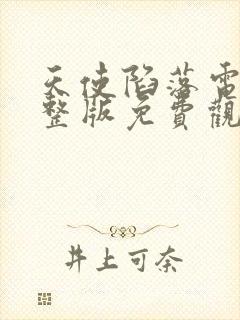 天使陷落電
整版免費觀
井上可奈